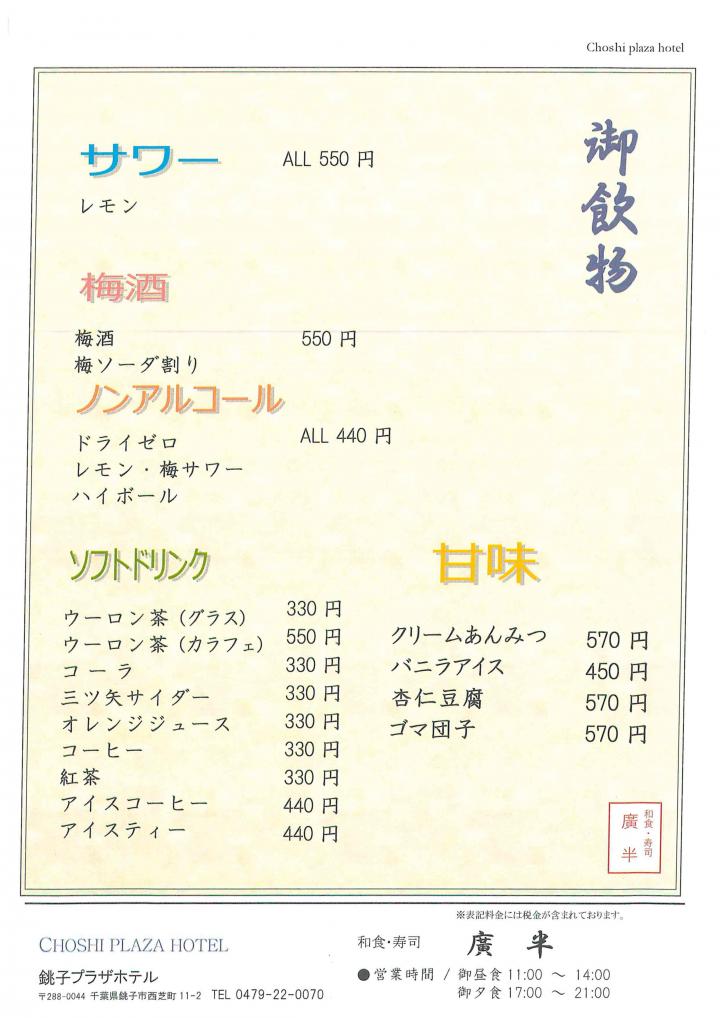 Choshi plaza hotel
御飲物
サワー ALL 550 円
レモン
梅酒
梅酒 550 円
梅ソーダ割り
ノンアルコール
ドライゼロ ALL 440 円
レモン・梅サワー
ハイボール
ソフトドリンク
ウーロン茶（グラス） 330 円
ウーロン茶（カラフェ） 550 円
コーラ 330 円
三ツ矢サイダー 330 円
オレンジジュース 330 円
コーヒー 330 円
紅茶 330 円
アイスコーヒー 440 円
アイスティー 440 円
甘味
クリームあんみつ 570 円
バニラアイス 450 円
杏仁豆腐 570 円
ゴマ団子 570 円
和食・寿司
廣半
※表記料金には税金が含まれております。
CHOSHI PLAZA HOTEL
銚子プラザホテル
〒288-0044 千葉県銚子市西芝町11-2 TEL 0479-22-0070
和食・寿司 廣半
●営業時間 / 御昼食 11:00 ～ 14:00
御夕食 17:00 ～ 21:00